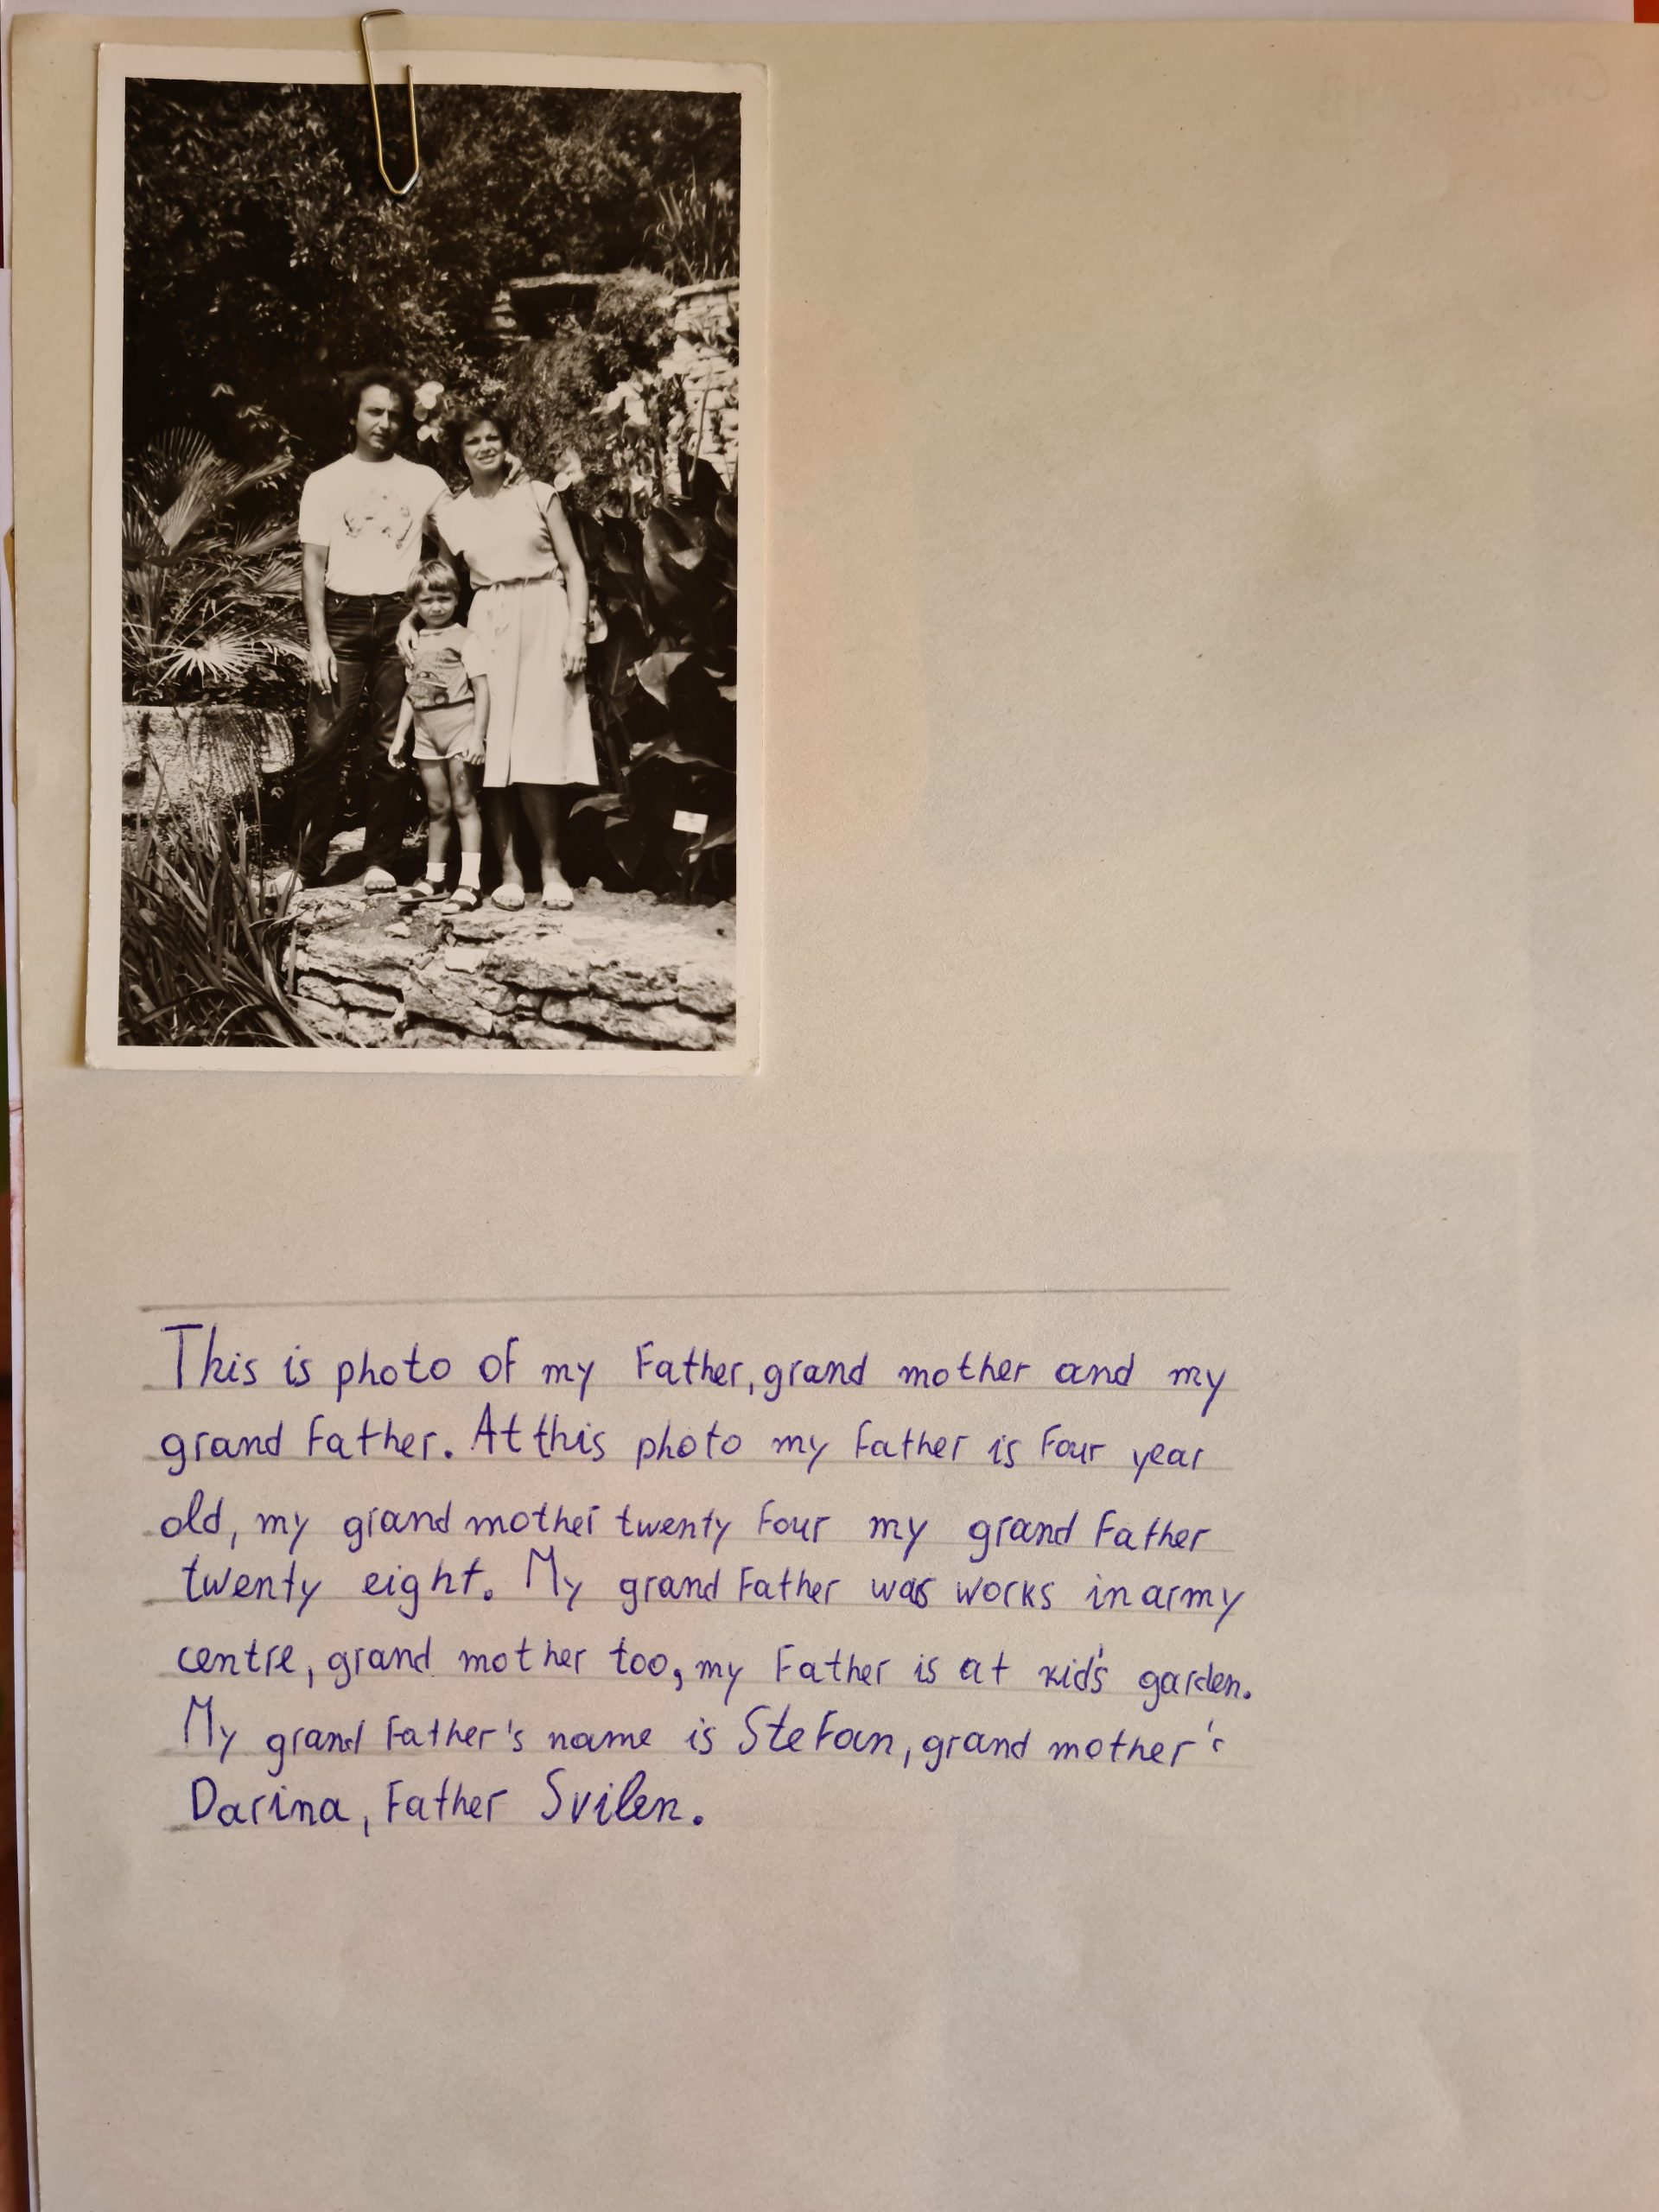 This is photo of my Father, grand mother and my
grand Father. At this photo my Father is Four year
old, my grand mother twenty Four my grand Father
twenty eight. My grand Father was works in army
centre, grand mother too, my Father is at kid's garden.
My grand Father's name is SteFan, grand mother's
Darina, Father Svilen.